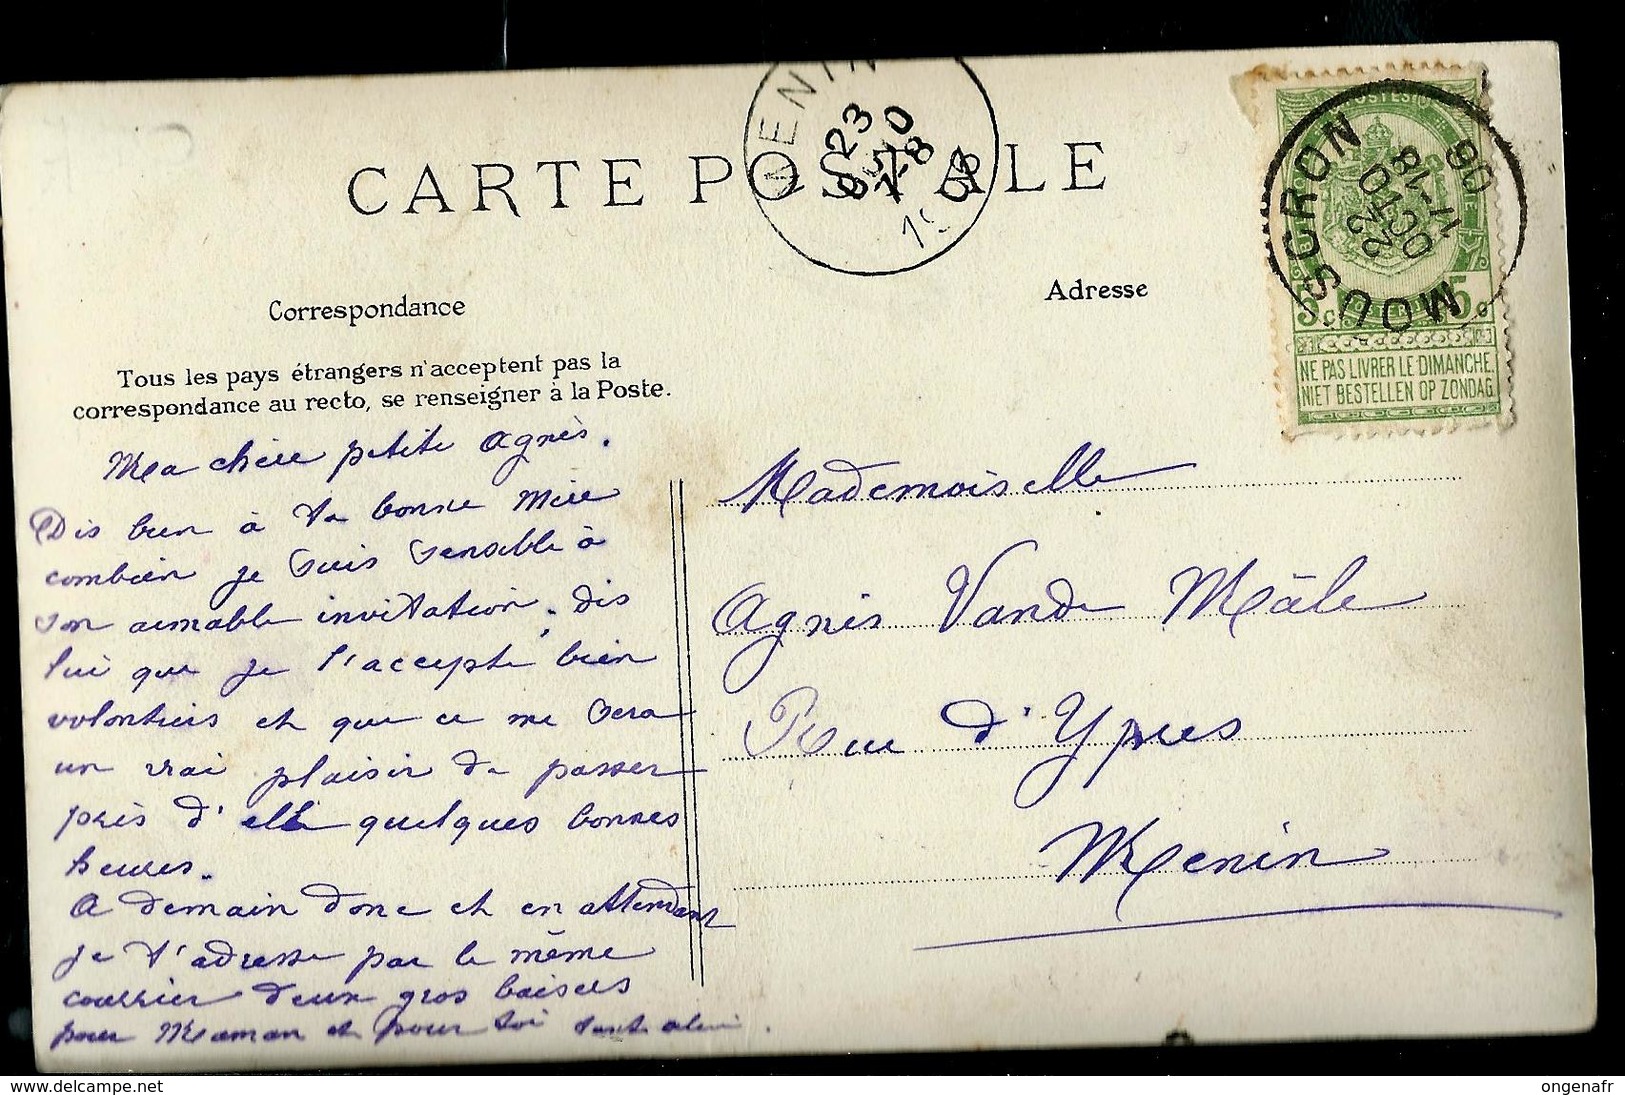 CARTE POSTALE
MENIN
23
7-8
MOUSCRON
17-18
5c 5c
NE PAS LIVRER LE DIMANCHE
NIET BESTELLEN OP ZONDAG
Correspondance
Adresse
Tous les pays étrangers n'acceptent pas la
correspondance au recto, se renseigner à la Poste.
Ma chère petite Agnès.
Dis bien à ta bonne Mère
combien je suis sensible à
son aimable invitation. dis
lui que je l'accepte bien
volontiers et que ce me sera
un vrai plaisir de passer
près d'elle quelques bonnes
heures.
A demain donc et en attendant
je t'adresse par le même
courrier deux gros baisers
pour Maman et pour toi
Mademoiselle
Agnès Vande Mäle
Rue d'Ypres
Menin
delcampe.net
ongenafr